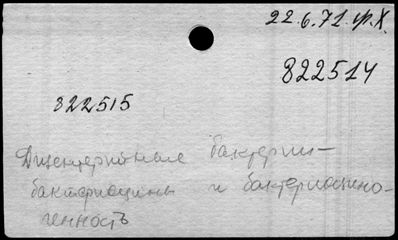 22.6.71. ф.Х.
822514
822515
Дизентерийные бактерии—
бактериоцины и бактериоцино-
генность